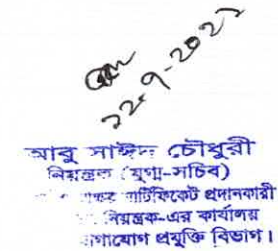 ২২-৭-২০২১
আবু সাঈদ চৌধুরী
নিয়ন্ত্রক (যুগ্ম-সচিব)
সার্টিফিকেট প্রদানকারী
নিয়ন্ত্রক-এর কার্যালয়
যোগাযোগ প্রযুক্তি বিভাগ।